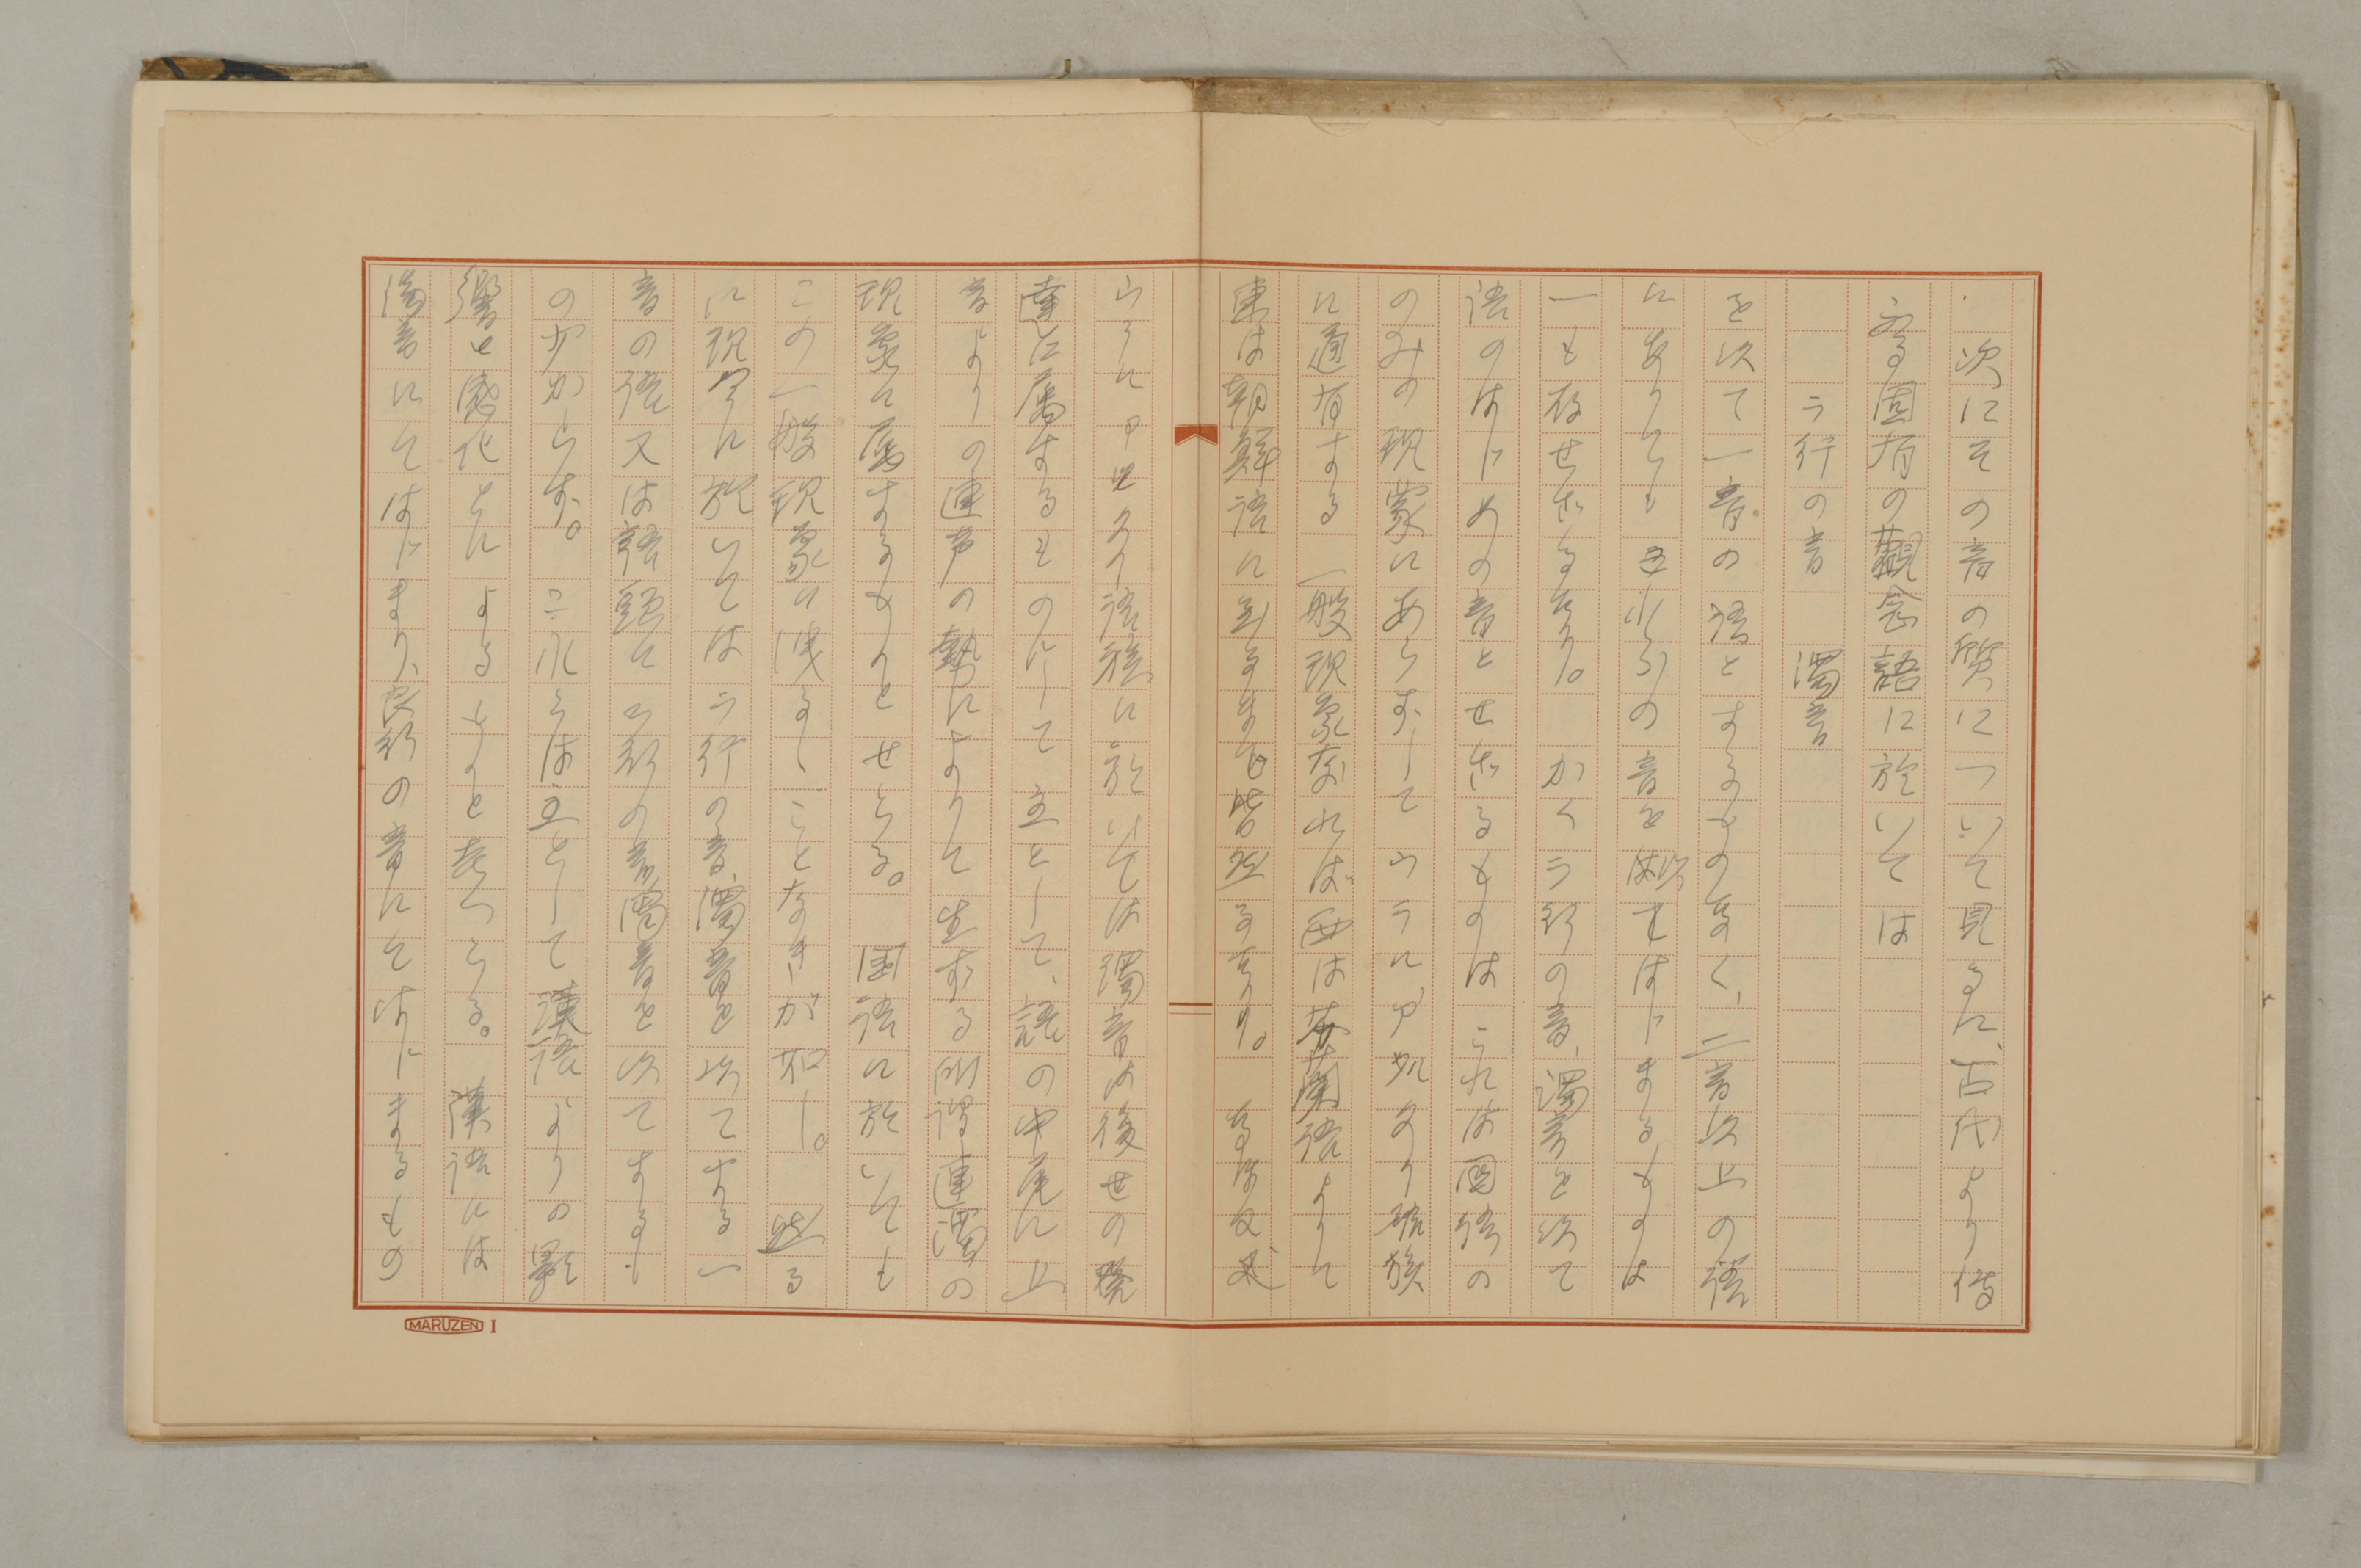 次にその音の質について見るに、古代より傳
ふる固有の觀念語に於いては
ラ行の音　濁音
を以て一音の語とするもの無く、二音以上の語
にありてもこれらの音を以てはじまるものは
一も存せざるなり。かくラ行の音、濁音を以て
語のはじめの音とせざるものはこれは國語の
のみの現象にあらずしてウラルアルタイ語族
に通有する一般現象なれば西は芬蘭語よりして
東は朝鮮語に至るまで皆然るなり。
ウラルアルタイ語族に於いては濁音は後世の發
達に属するものにして主として、語の中尾に上
音よりの連声の勢によりて生ずる所謂連濁の
現象に属するものとせらる。国語に於いても
この一般現象に洩るゝことなきが如し。然る
に現今に於いてはラ行の音、濁音を以てする一
音の語又は語頭にラ行の音濁音を以てするも
の少からず。これらは主として漢語よりの影
響と感化とによるものと考へらる。漢語には
濁音にてはじまり、良行の音にてはじまるもの
MARUZEN I